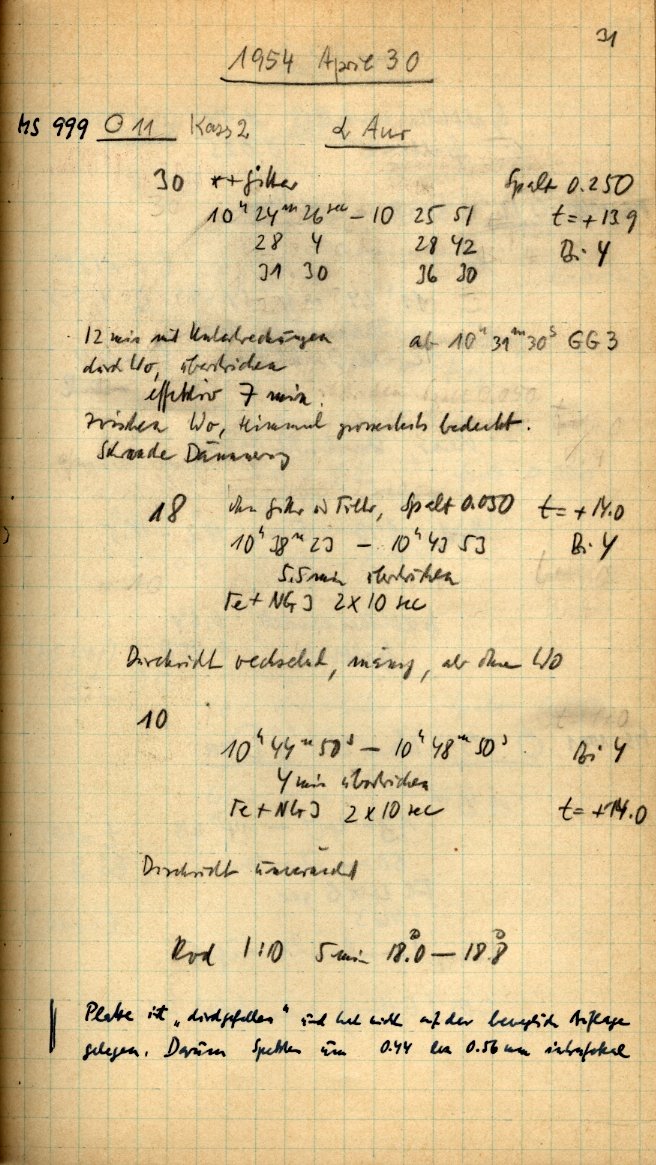 31
1954 April 30
MS 999 O 11 Kass 2 α Aur
30 *+Gitter Spalt 0.250
10ʰ 24ᵐ 26ˢᵉᶜ – 10 25 51 t = + 13.9
28 4 28 42 Bi 4
31 30 36 30
12 min mit Unterbrechungen ab 10ʰ 31ᵐ 30ˢ GG 3
durch Wo, überstrichen
effektiv 7 min.
zwischen Wo, Himmel grossenteils bedeckt.
Dämmerung
18 ohne Gitter Filter, Spalt 0.050 t = + 14.0
10ʰ 38ᵐ 23 – 10ʰ 43 53 Bi 4
5.5 min überstrichen
Fe + NG 3 2 x 10 sec
Durchsicht wechselnd, mässig, aber ohne Wo
10
10ʰ 44ᵐ 50ˢ – 10ʰ 48ᵐ 50ˢ Bi 4
4 min überstrichen
Fe + NG 3 2 x 10 sec t = + 14.0
Durchsicht
Rod 1:10 5 min 18.0 – 18.8
Platte ist „durchgefallen“ und hat nicht auf der Auflage
gelegen. Darum Spektren um 0.44 bis 0.56 mm intrafokal